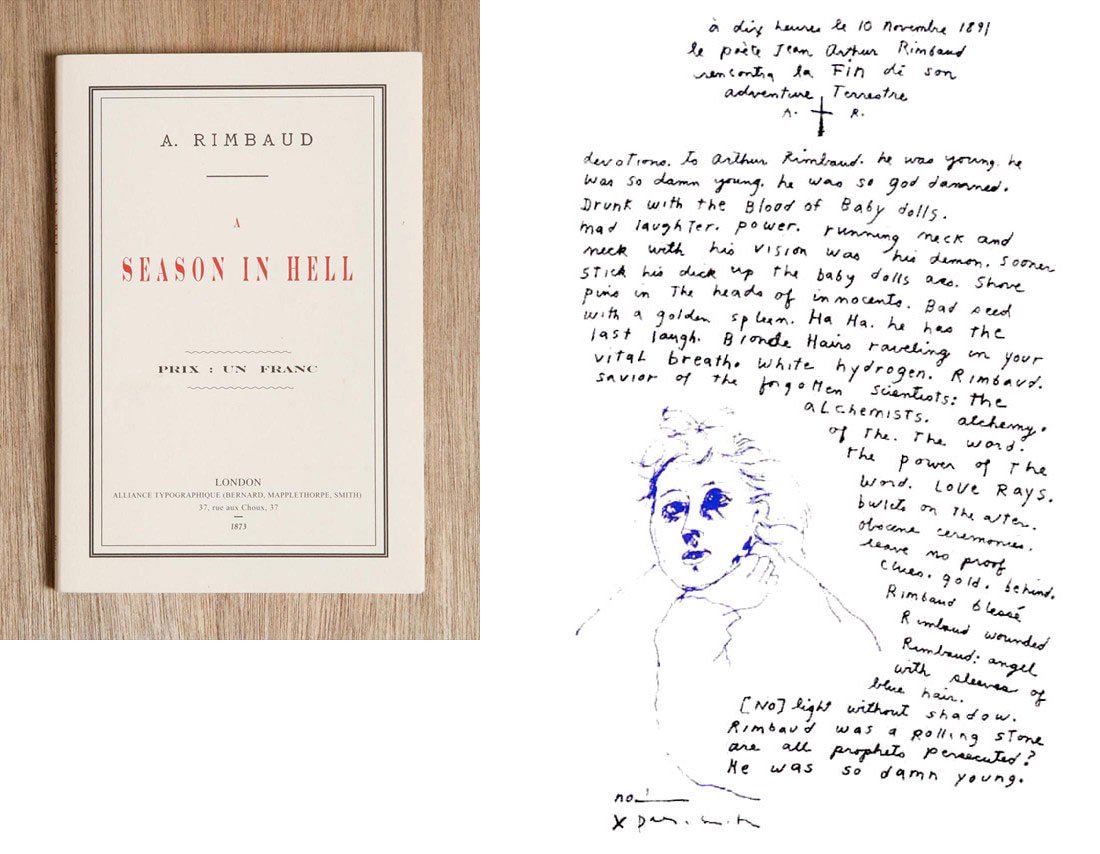 A. RIMBAUD
A
SEASON IN HELL
PRIX : UN FRANC
LONDON
ALLIANCE TYPOGRAPHIQUE (BERNARD, MAPPLETHORPE, SMITH)
37, rue aux Choux, 37
1873
à dix heures le 10 Novembre 1891
le poète Jean Arthur Rimbaud
rencontra la Fin de son
adventure Terrestre
A. R.
devotions. to Arthur Rimbaud. he was young. he
was so damn young. he was so god damned.
Drunk with the Blood of Baby dolls.
mad laughter. power. running neck and
neck with his vision was his demon. Sooner
stick his dick up the baby dolls ass. Shove
pins in The heads of innocents. Bad seed
with a golden spleen. Ha Ha. he has the
last laugh. Blonde Hairs raveling in your
vital breath. White hydrogen. Rimbaud.
savior of the forgotten scientists: the
alchemists. alchemy.
of The. The word.
the power of The
word. Love Rays.
bullets on The alter.
obscene ceremonies.
leave no proof
clues. gold. behind.
Rimbaud blessé
Rimbaud wounded
Rimbaud: angel
with sleeves of
blue hair.
[NO] light without shadow.
Rimbaud was a rolling stone
are all prophets persecuted?
He was so damn young.
no.
X